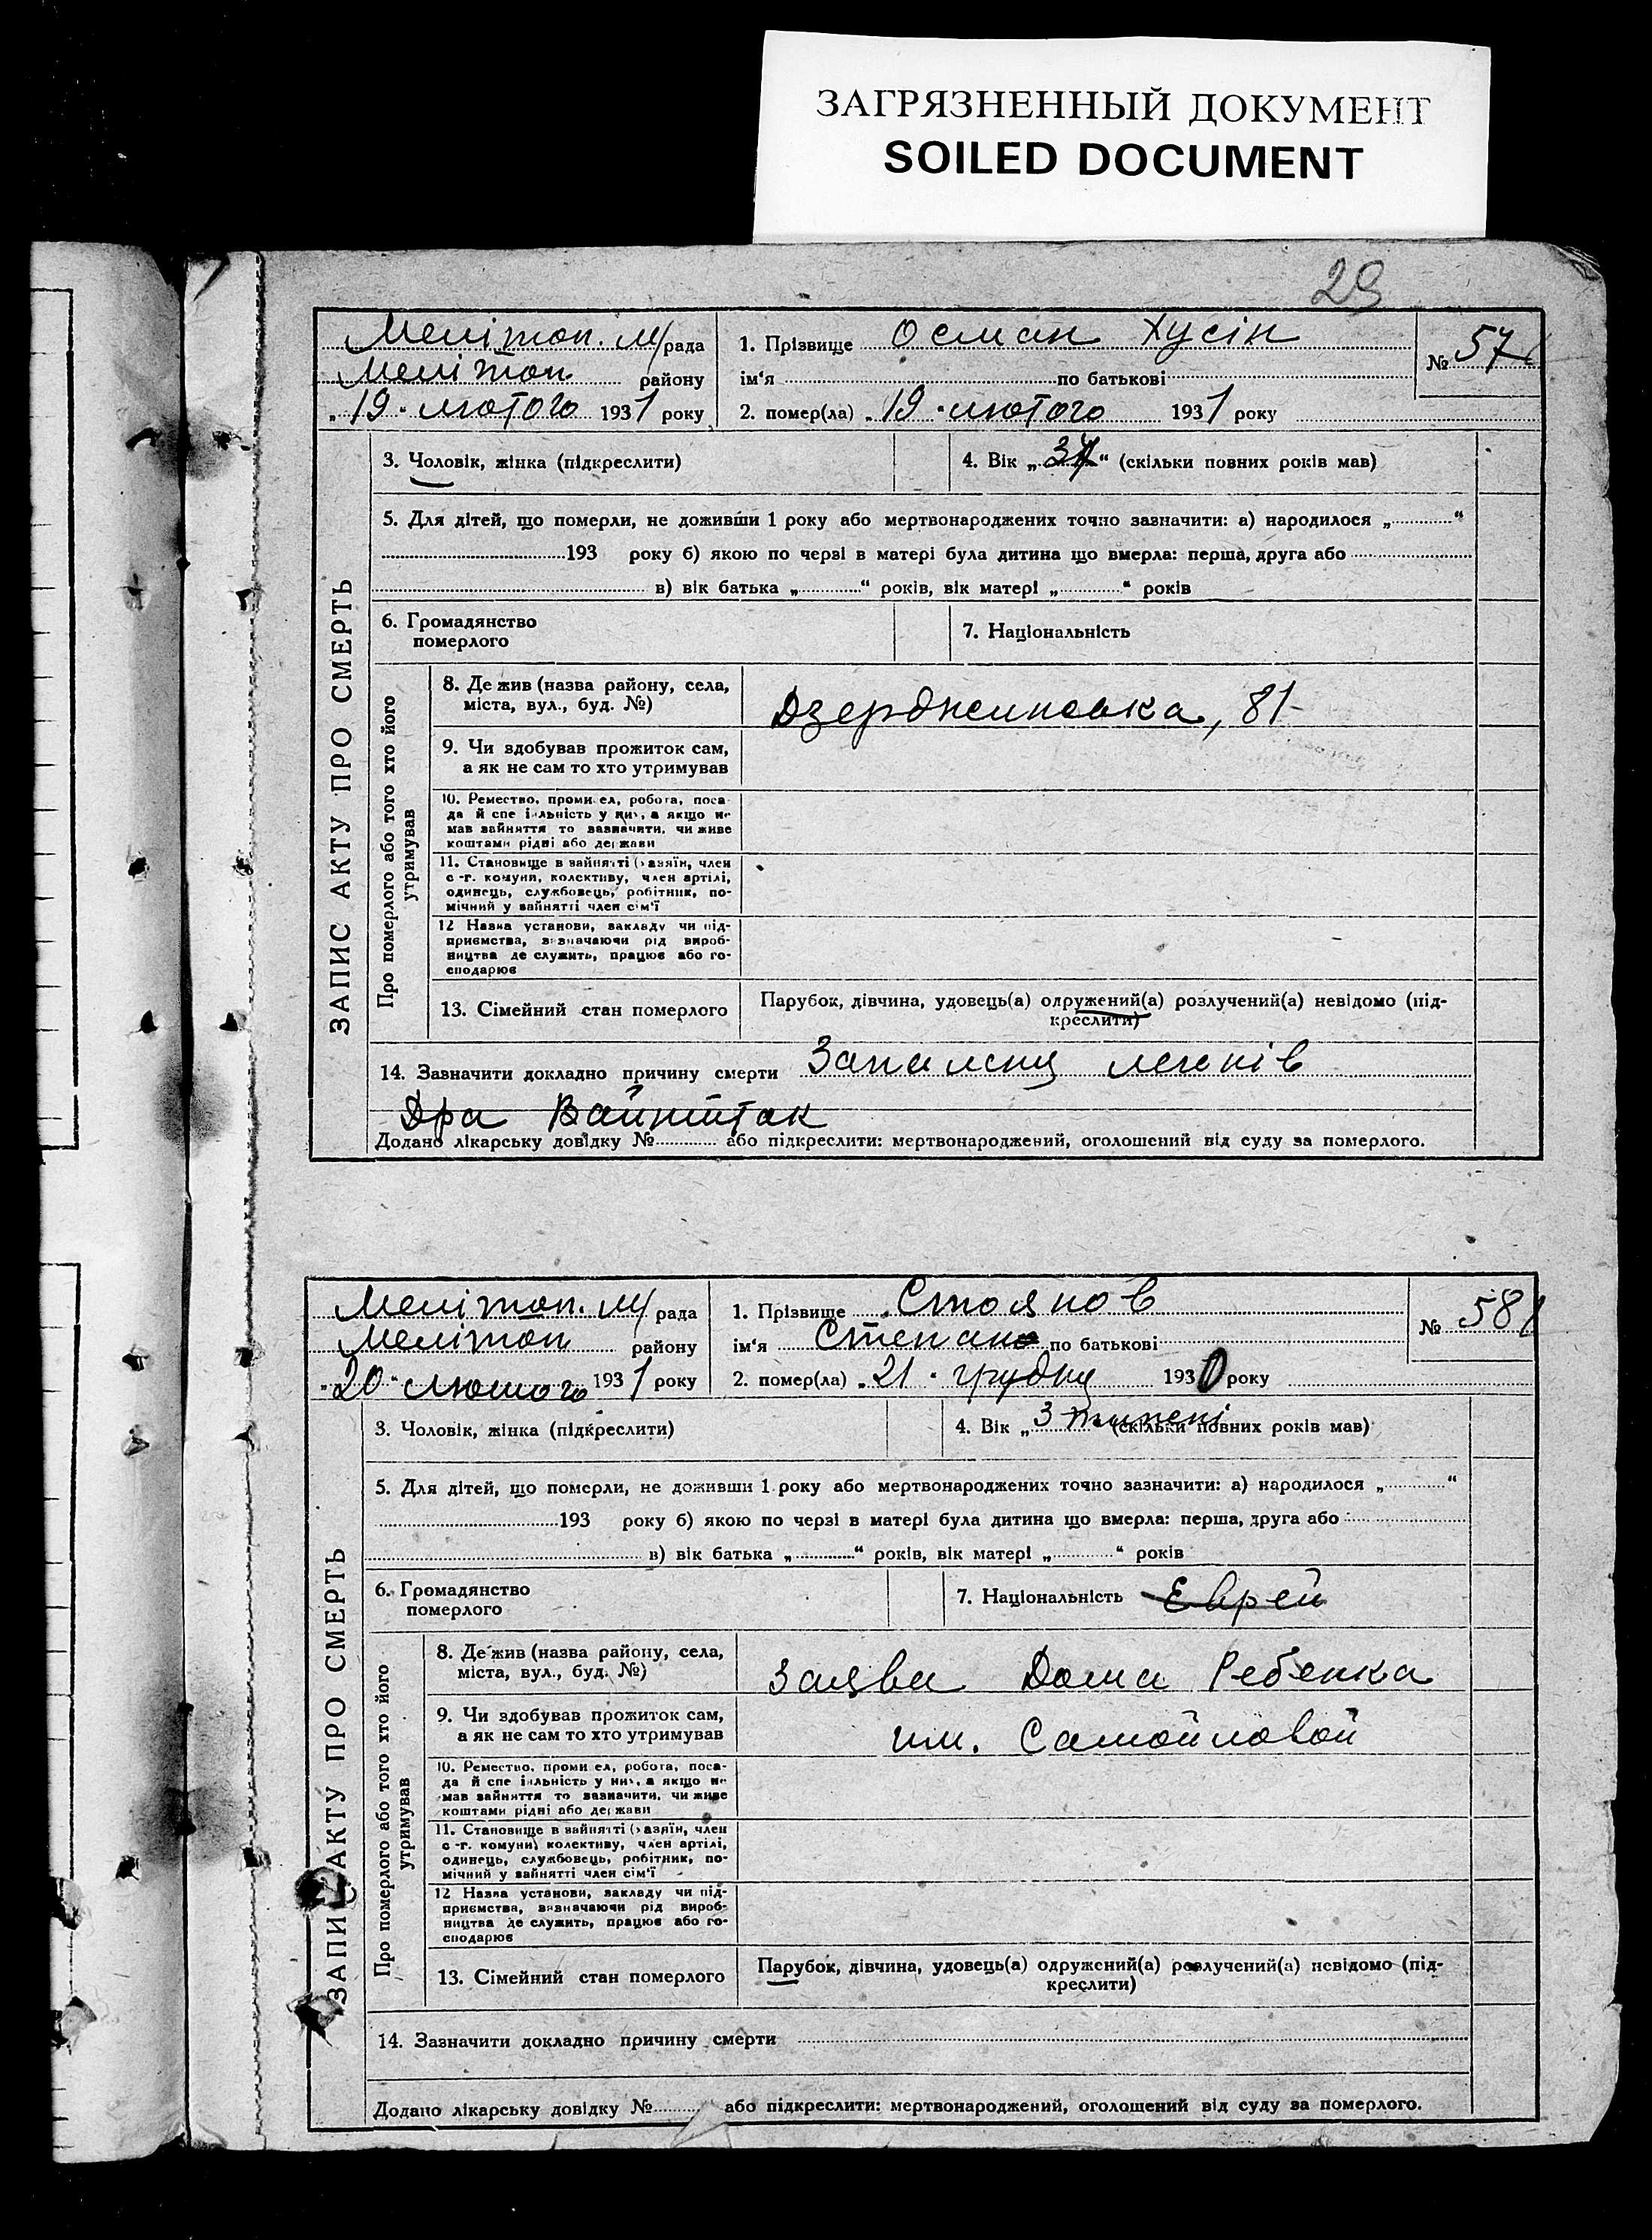 ЗАГРЯЗНЕННЫЙ ДОКУМЕНТ
SOILED DOCUMENT
29
Мелітоп. М/рада
Мелітоп. району
„19“ лютого 1931 року
1. Прізвище Осман Хусін
ім‘я по батькові
2. помер(ла) „19“ лютого 1931 року
№ 57
ЗАПИС АКТУ ПРО СМЕРТЬ
3. Чоловік, жінка (підкреслити)
4. Вік „ “ (скільки повних років мав)
5. Для дітей, що померли, не доживши 1 року або мертвонароджених точно зазначити: а) народилося „ “
193 року б) якою по черзі в матері була дитина що вмерла: перша, друга або
в) вік батька „ “ років, вік матері „ “ років
6. Громадянство
померлого
7. Національність
Про померлого або того хто його
утримував
8. Де жив (назва району, села,
міста, вул., буд. №)
Дзерджинська, 81
9. Чи здобував прожиток сам,
а як не сам то хто утримував
10. Ремество, промисел, робота, поса-
да й спеціяльність у них, а якщо не
мав зайняття то зазначити, чи живе
коштами рідні або держави
11. Становище в зайнятті (хазяїн, член
с.-г. комуни, колективу, член артілі,
одинець, службовець, робітник, по-
мічний у зайнятті член сім‘ї
12 Назва установи, закладу чи під-
приємства, зазначаючи рід вироб-
ництва де служить, працює або го-
сподарює
13. Сімейний стан померлого
Парубок, дівчина, удовець(а) одружений(а) розлучений(а) невідомо (під-
креслити)
14. Зазначити докладно причину смерти Запаленя легенів
Дра Вайншток
Додано лікарську довідку № або підкреслити: мертвонароджений, оголошений від суду за померлого.
Меліноп. М/рада
Меліноп району
„20“ Лютого 1931 року
1. Прізвище Стоянов
ім‘я Степан по батькові
2. помер(ла) „21“ грудня 1930 року
№ 58
ЗАПИС АКТУ ПРО СМЕРТЬ
3. Чоловік, жінка (підкреслити)
4. Вік „ 3 тижені (скільки повних років мав)
5. Для дітей, що померли, не доживши 1 року або мертвонароджених точно зазначити: а) народилося „ “
193 року б) якою по черзі в матері була дитина що вмерла: перша, друга або
в) вік батька „ “ років, вік матері „ “ років
6. Громадянство
померлого
7. Національність Еврей
Про померлого або того хто його
утримував
8. Де жив (назва району, села,
міста, вул., буд. №)
Заява Дома Ребенка
9. Чи здобував прожиток сам,
а як не сам то хто утримував
им. Самойловой
10. Ремество, промисел, робота, поса-
да й спеціяльність у них, а якщо не
мав зайняття то зазначити, чи живе
коштами рідні або держави
11. Становище в зайнятті (хазяїн, член
с.-г. комуни, колективу, член артілі,
одинець, службовець, робітник, по-
мічний у зайнятті член сім‘ї
12 Назва установи, закладу чи під-
приємства, зазначаючи рід вироб-
ництва де служить, працює або го-
сподарює
13. Сімейний стан померлого
Парубок, дівчина, удовець(а) одружений(а) розлучений(а) невідомо (під-
креслити)
14. Зазначити докладно причину смерти
Додано лікарську довідку № або підкреслити: мертвонароджений, оголошений від суду за померлого.